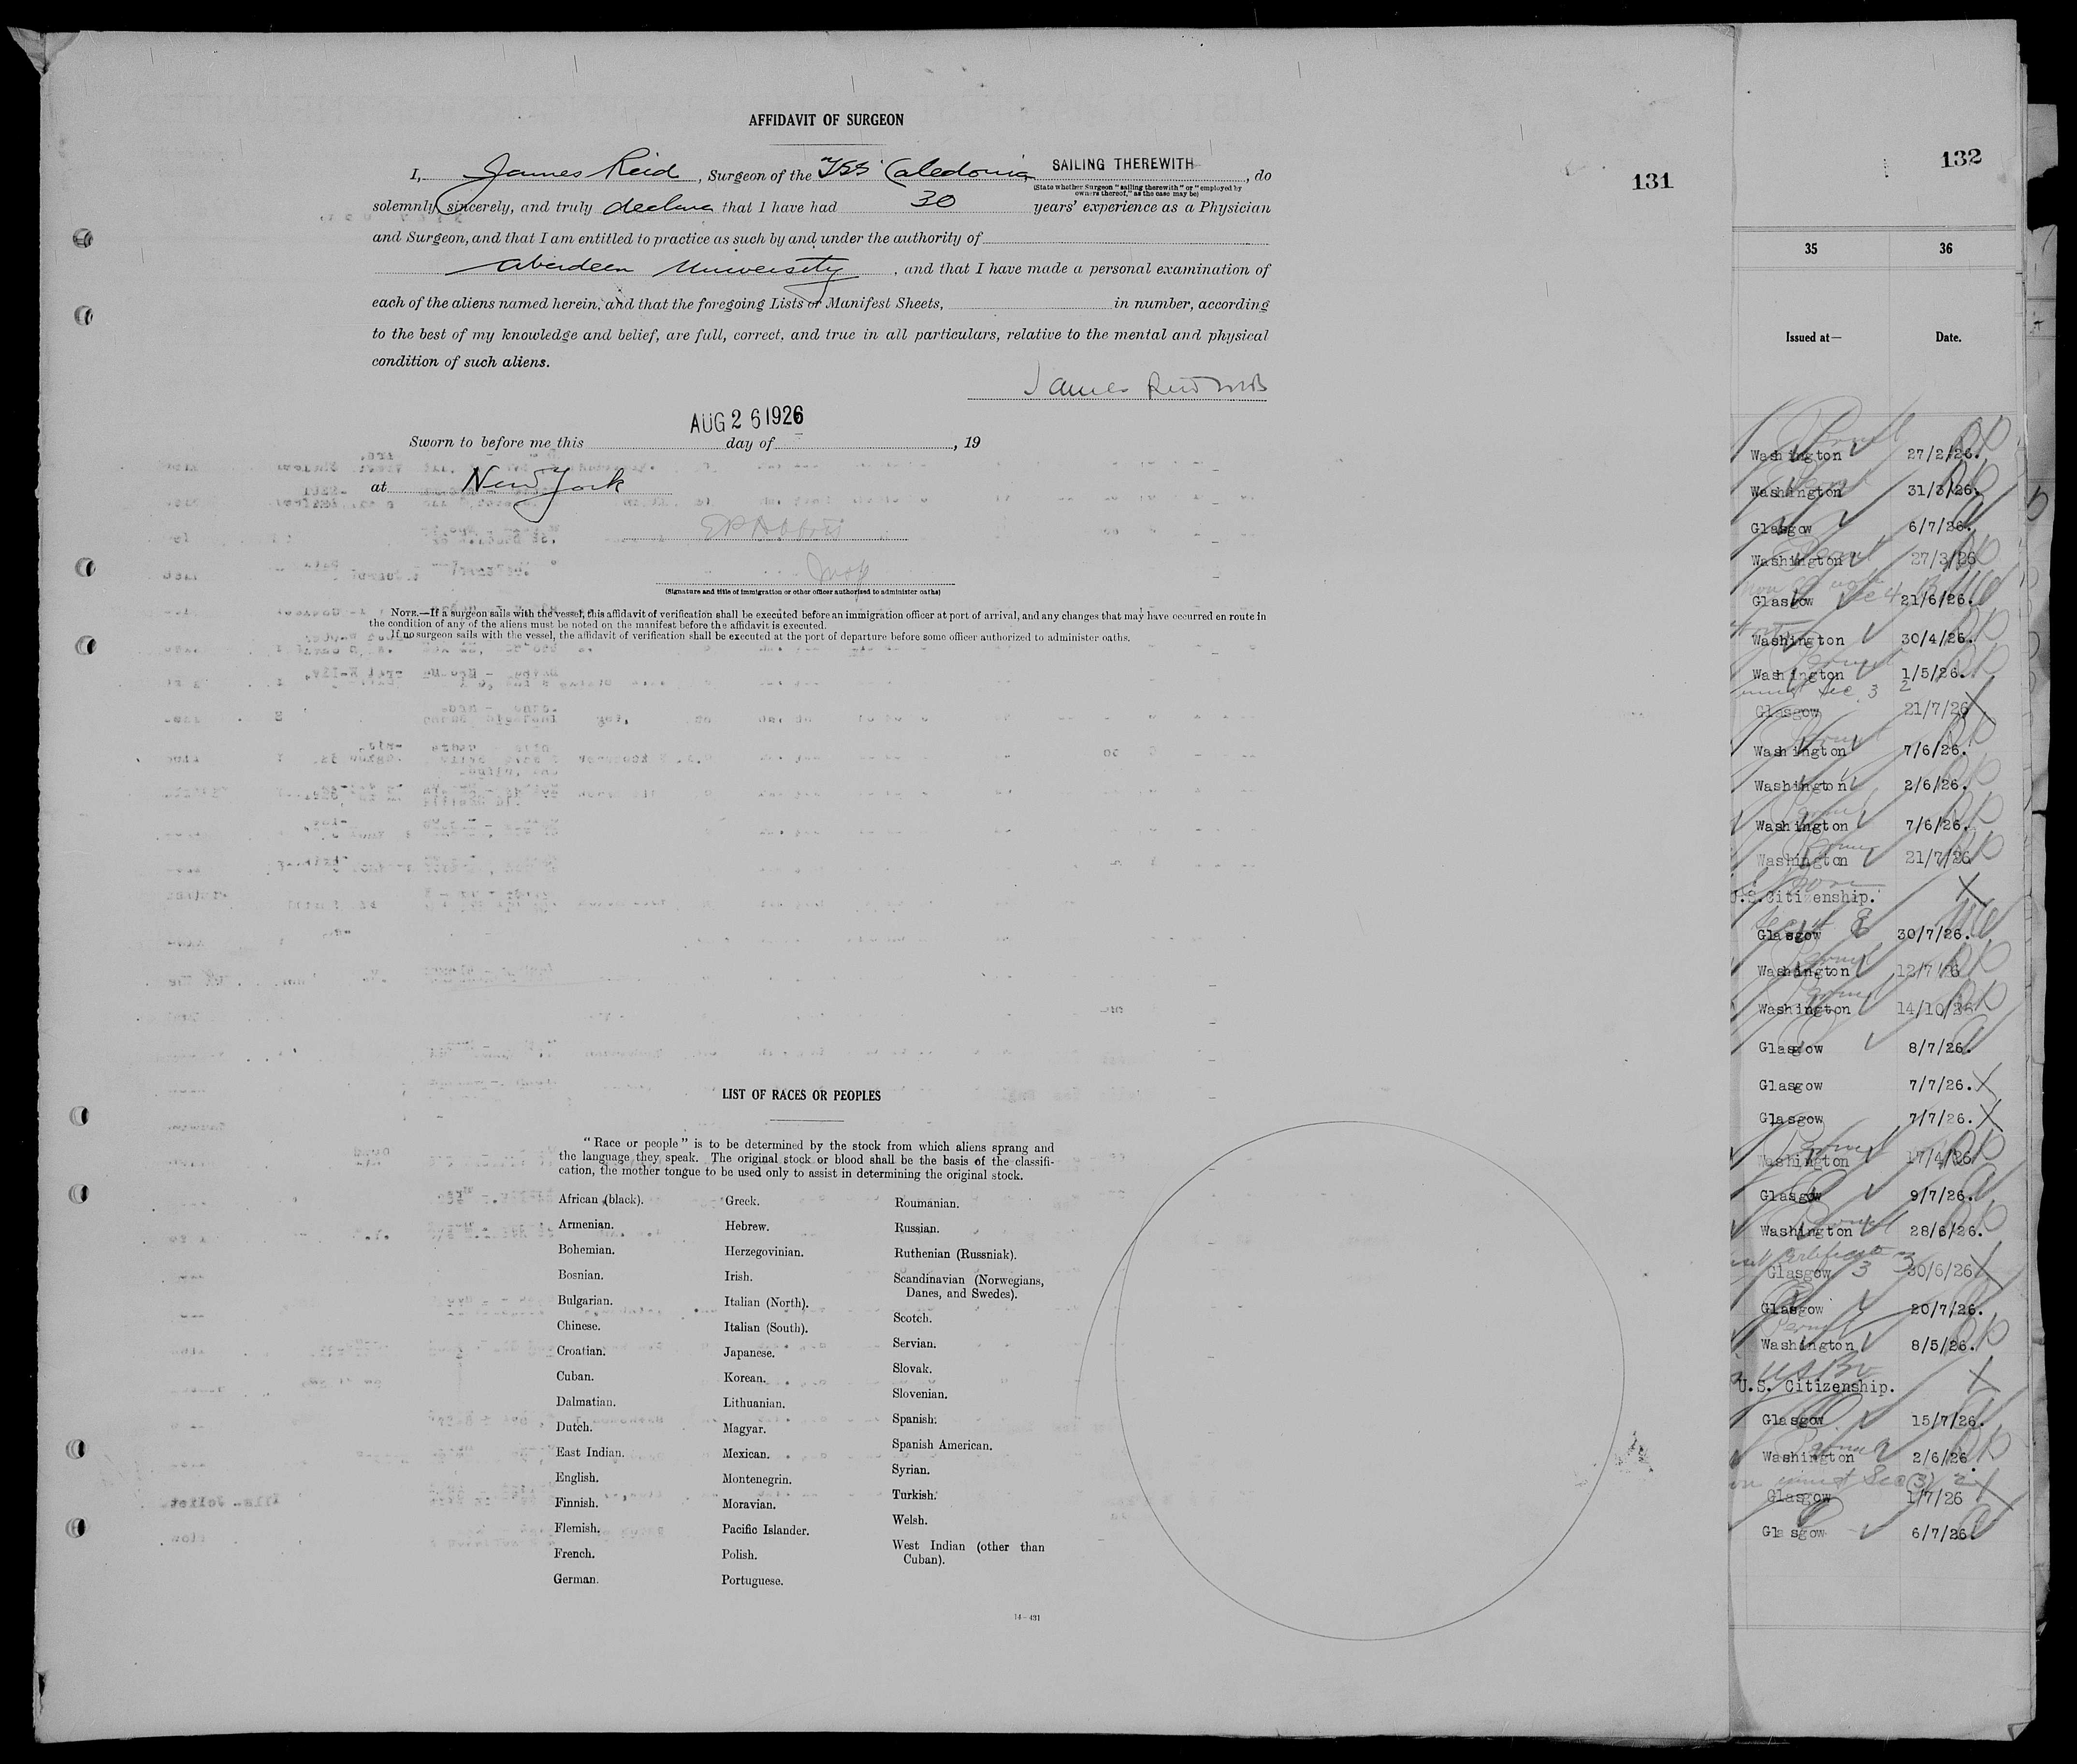 AFFIDAVIT OF SURGEON
I, James Reid, Surgeon of the TSS Caledonia SAILING THEREWITH, do
(State whether Surgeon "sailing therewith" or "employed by
owners thereof," as the case may be)
solemnly, sincerely, and truly declare that I have had 30 years' experience as a Physician
and Surgeon, and that I am entitled to practice as such by and under the authority of
Aberdeen University, and that I have made a personal examination of
each of the aliens named herein, and that the foregoing Lists or Manifest Sheets, in number, according
to the best of my knowledge and belief, are full, correct, and true in all particulars, relative to the mental and physical
condition of such aliens.
James Reid MB
AUG 26 1926
Sworn to before me this day of , 19
at New York
(Signature and title of immigration or other officer authorized to administer oaths)
NOTE.—If a surgeon sails with the vessel, this affidavit of verification shall be executed before an immigration officer at port of arrival, and any changes that may have occurred en route in
the condition of any of the aliens must be noted on the manifest before the affidavit is executed.
If no surgeon sails with the vessel, the affidavit of verification shall be executed at the port of departure before some officer authorized to administer oaths.
LIST OF RACES OR PEOPLES
"Race or people" is to be determined by the stock from which aliens sprang and
the language they speak. The original stock or blood shall be the basis of the classifi-
cation, the mother tongue to be used only to assist in determining the original stock.
African (black).
Armenian.
Bohemian.
Bosnian.
Bulgarian.
Chinese.
Croatian.
Cuban.
Dalmatian.
Dutch.
East Indian.
English.
Finnish.
Flemish.
French.
German.
Greek.
Hebrew.
Herzegovinian.
Irish.
Italian (North).
Italian (South).
Japanese.
Korean.
Lithuanian.
Magyar.
Mexican.
Montenegrin.
Moravian.
Pacific Islander.
Polish.
Portuguese.
Roumanian.
Russian.
Ruthenian (Russniak).
Scandinavian (Norwegians,
Danes, and Swedes).
Scotch.
Servian.
Slovak.
Slovenian.
Spanish.
Spanish American.
Syrian.
Turkish.
Welsh.
West Indian (other than
Cuban).
14—431
131
132
35 36
Issued at— Date.
Washington 27/2/26.
Washington 31/3/26.
Glasgow 6/7/26.
Washington 27/3/26
Glasgow 21/6/26.
Washington 30/4/26.
Washington 1/5/26.
Glasgow 21/7/26
Washington 7/6/26.
Washington 2/6/26.
Washington 7/6/26.
Washington 21/7/26
U.S.Citizenship.
Glasgow 30/7/26.
Washington 12/7/26
Washington 14/10/26
Glasgow 8/7/26.
Glasgow 7/7/26.
Glasgow 7/7/26.
Washington 17/4/26
Glasgow 9/7/26.
Washington 28/6/26.
Glasgow 30/6/26
Glasgow 20/7/26.
Washington 8/5/26.
U.S. Citizenship.
Glasgow 15/7/26.
Washington 2/6/26.
Glasgow 1/7/26
Glasgow 6/7/26.